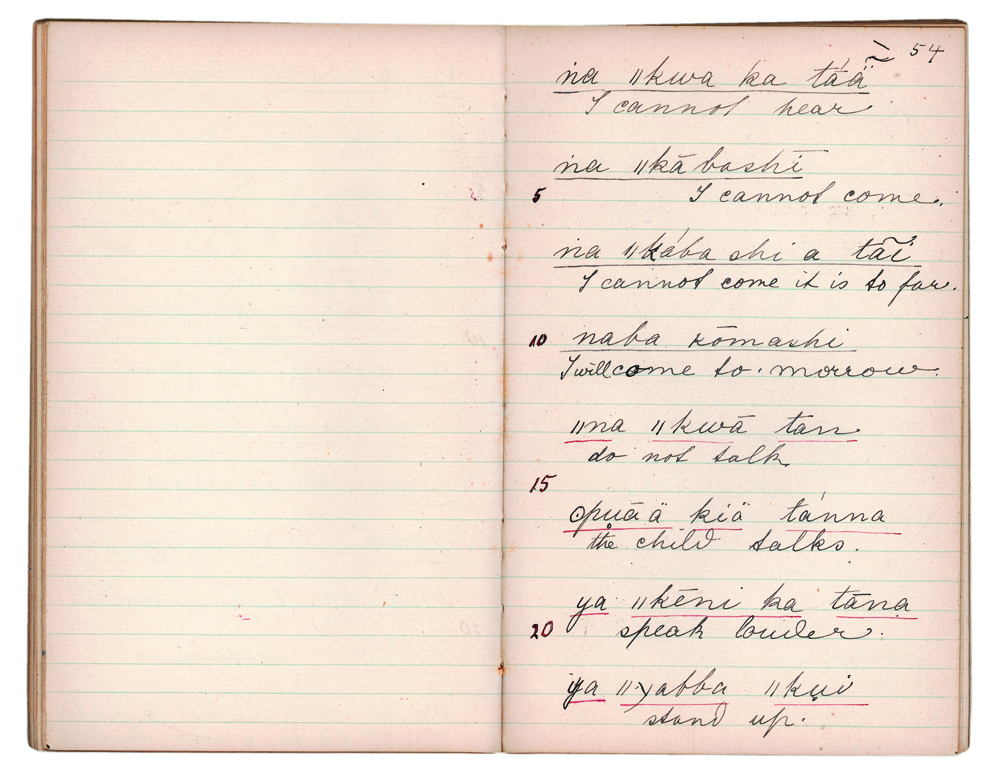 54
n̍a ||kwa ka tá̄ä̃
I cannot hear
n̍a ||kābashī
5 I cannot come.
n̍a ||kába shi a tãi
I cannot come it is to far.
10 naba kōmashi
I will come to.morrow.
||na ||kwā tan
do not talk
15
ʘpuāä kiä tánna
the child talks.
ya ||kēni ka tāna
20 speak louder.
ya ||yabba ||kui
stand up.